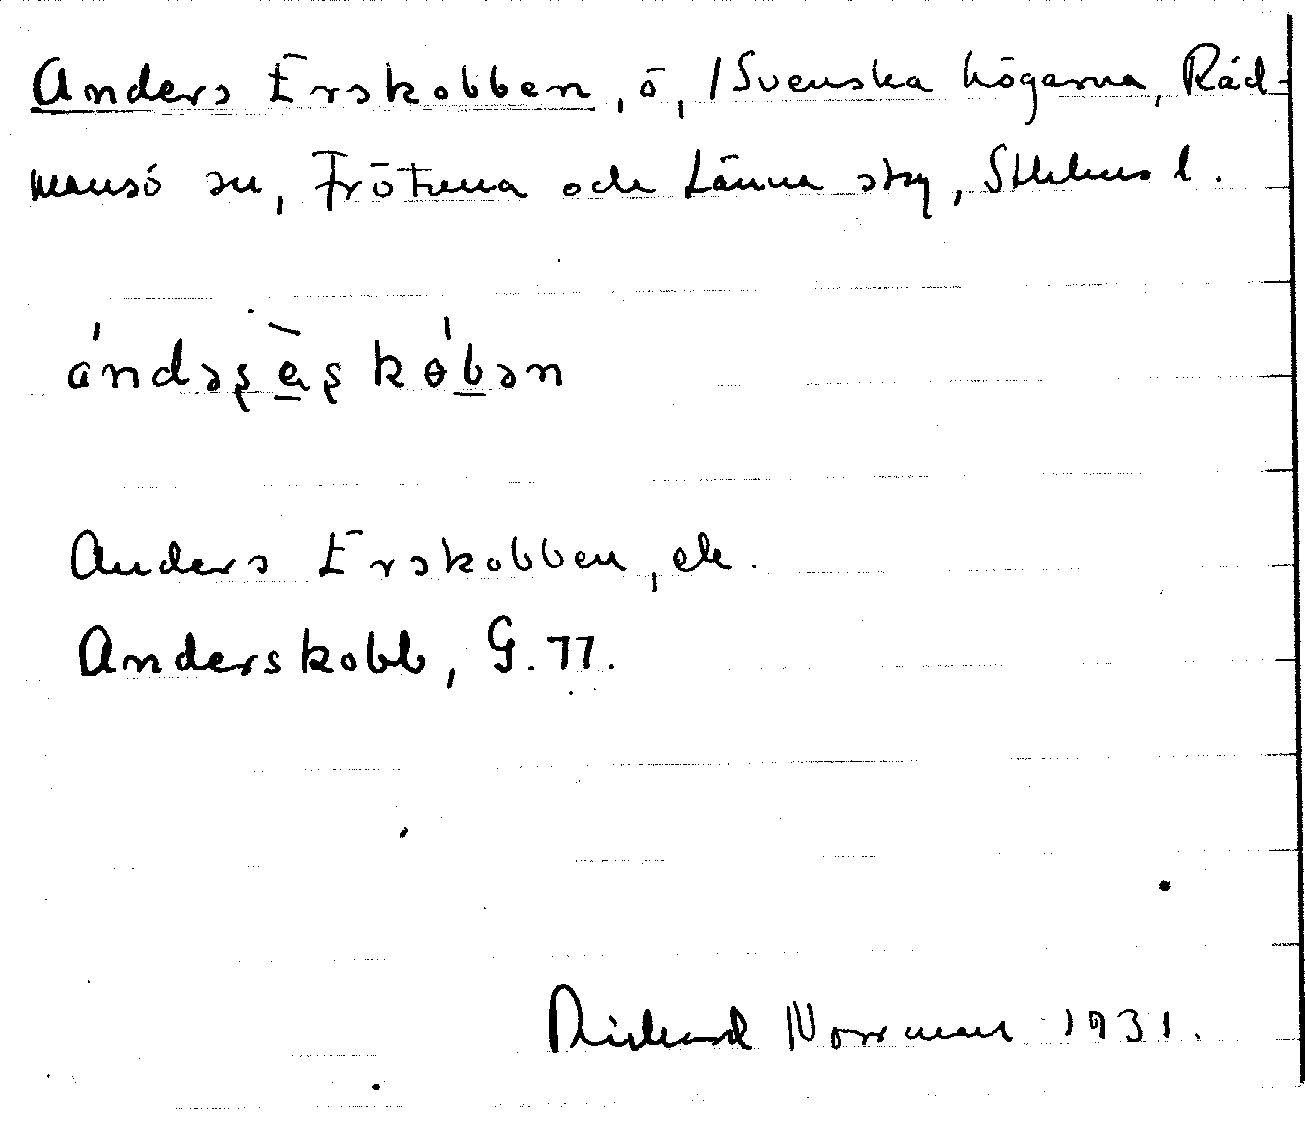 Anders Erskobben, ö, / Svenska högarna, Råd-
mansö sn, Frötuna och Länna sky, Sthlms l.
ándəʂ èʂ kɵ́bən
Anders Erskobben, ek.
Anderskobb, G. 77.
Rickard Norrman 1931.